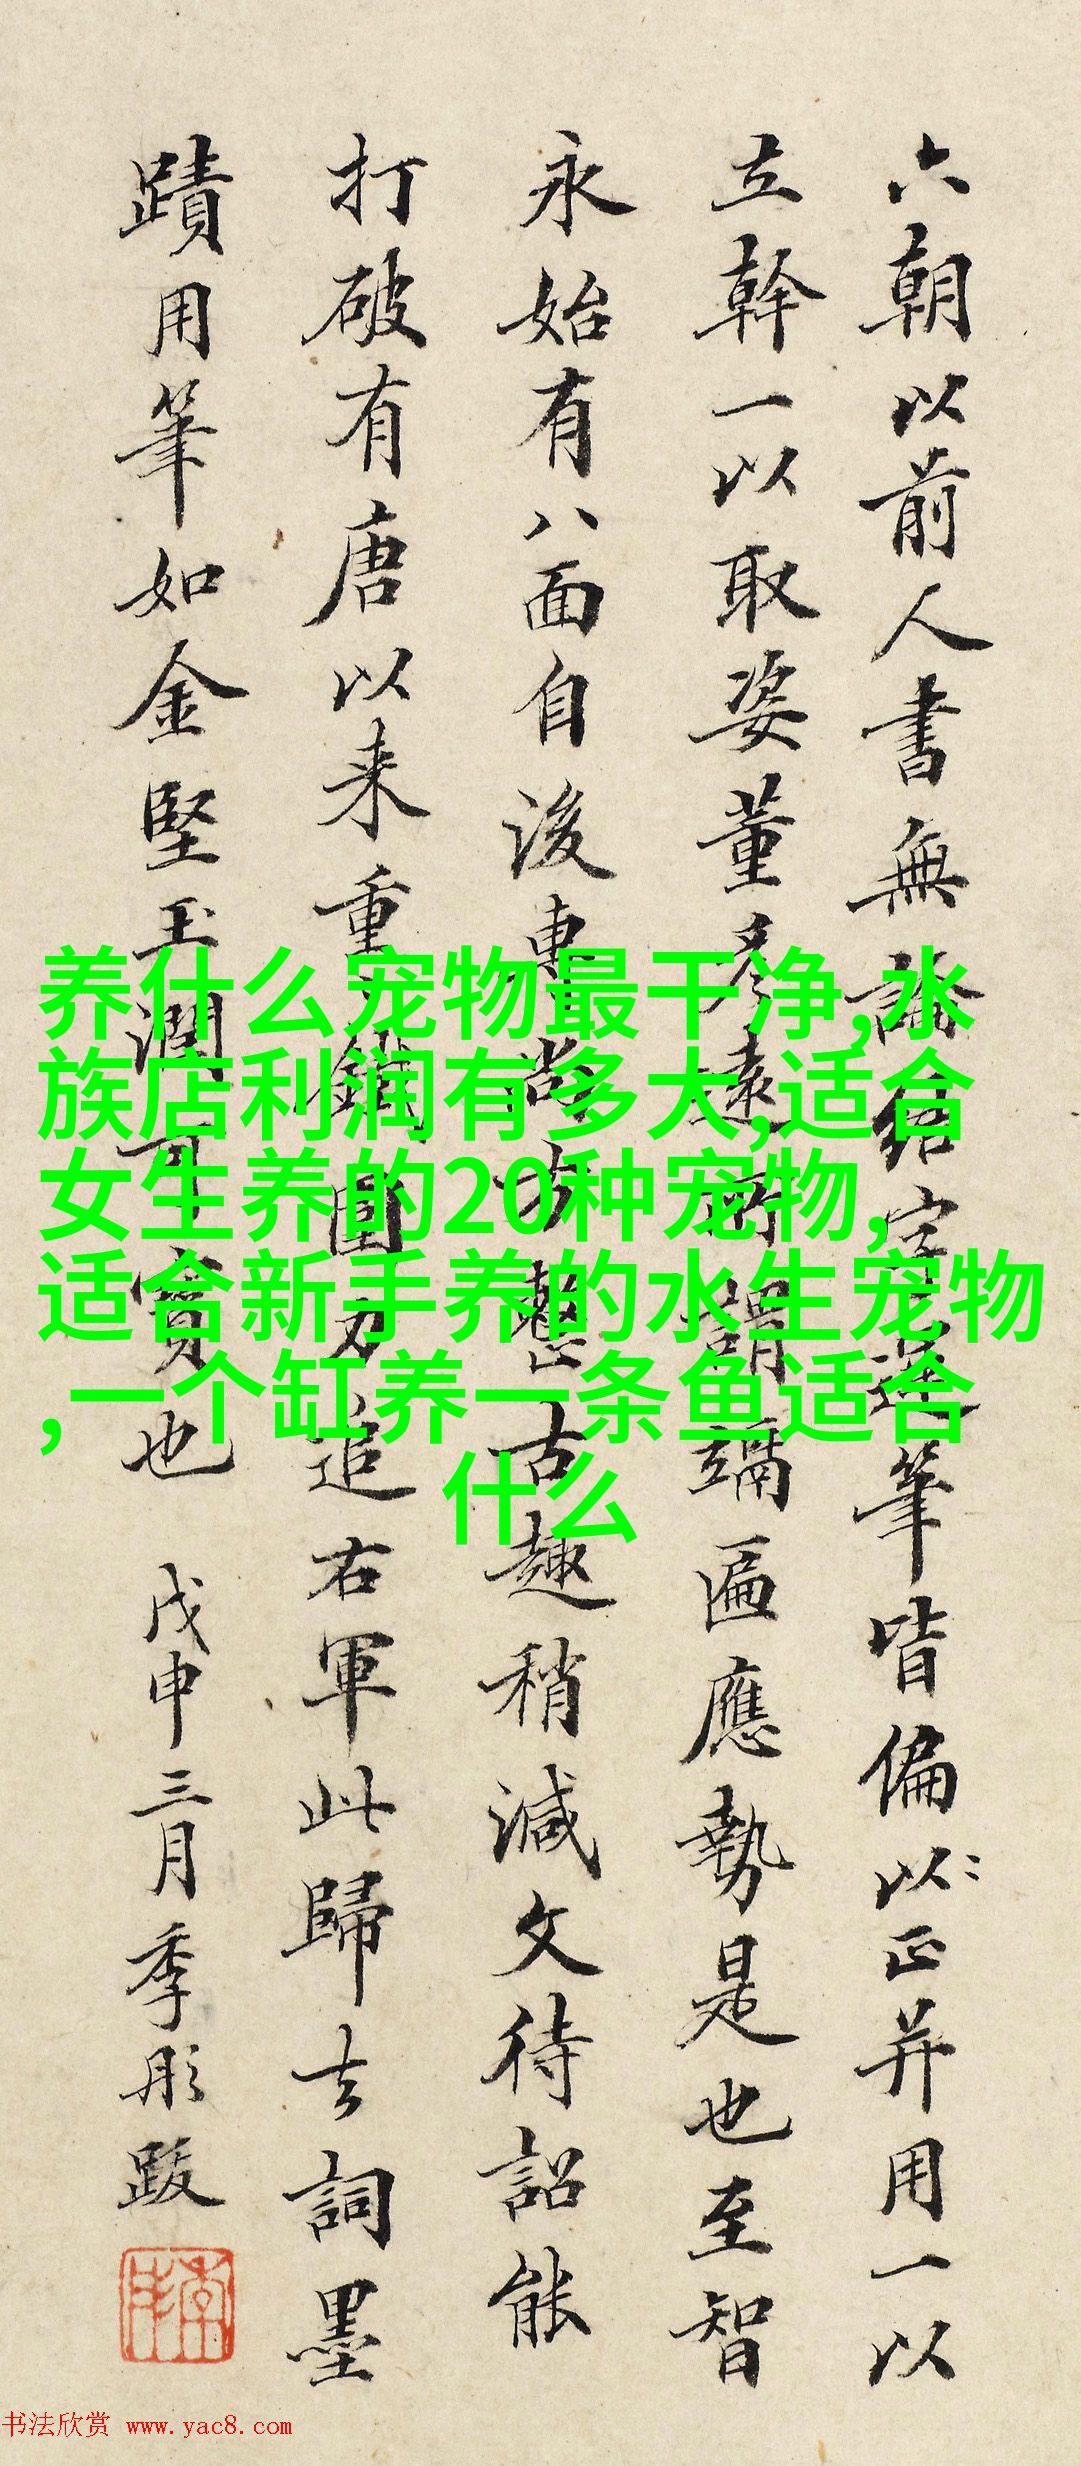 六朝以前人書無論結字運筆皆偏以正并用一以
立幹一以取姿董彥遠所謂墑匾應勢是也至智
永始有八面自後專尚方整古趣稍減文待詔能
打破有唐以来重鎖圍力追右軍此歸去詞墨
蹟用筆如金堅玉潤可寶也
戊申三月季彤跋
养什么宠物最干净,水
族店利润有多大,适合
女生养的20种宠物,
适合新手养的水生宠物
,一个缸养一条鱼适合
什么
书法欣赏 www.yac8.com